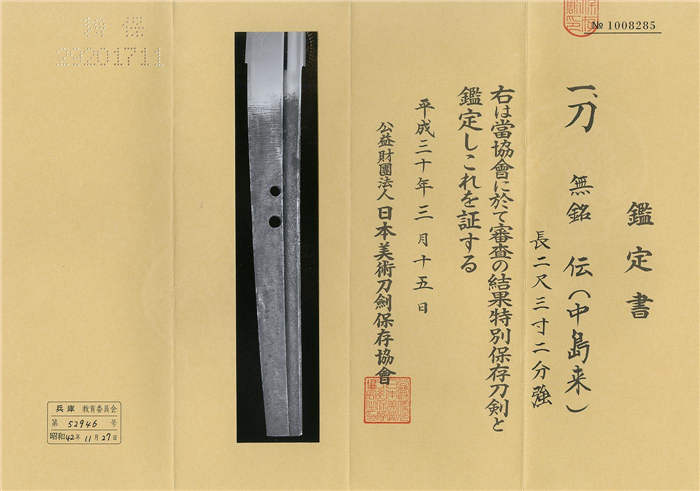 № 1008285
鑑定書
一、刀 無銘 伝(中島来)
長二尺三寸二分強
右は當協會に於て審査の結果特別保存刀剣と
鑑定しこれを証する
平成三十年三月十五日
公益財團法人 日本美術刀劍保存協會
特保
20201711
兵庫 教育委員会
第 52946 号
昭和42年11月27日